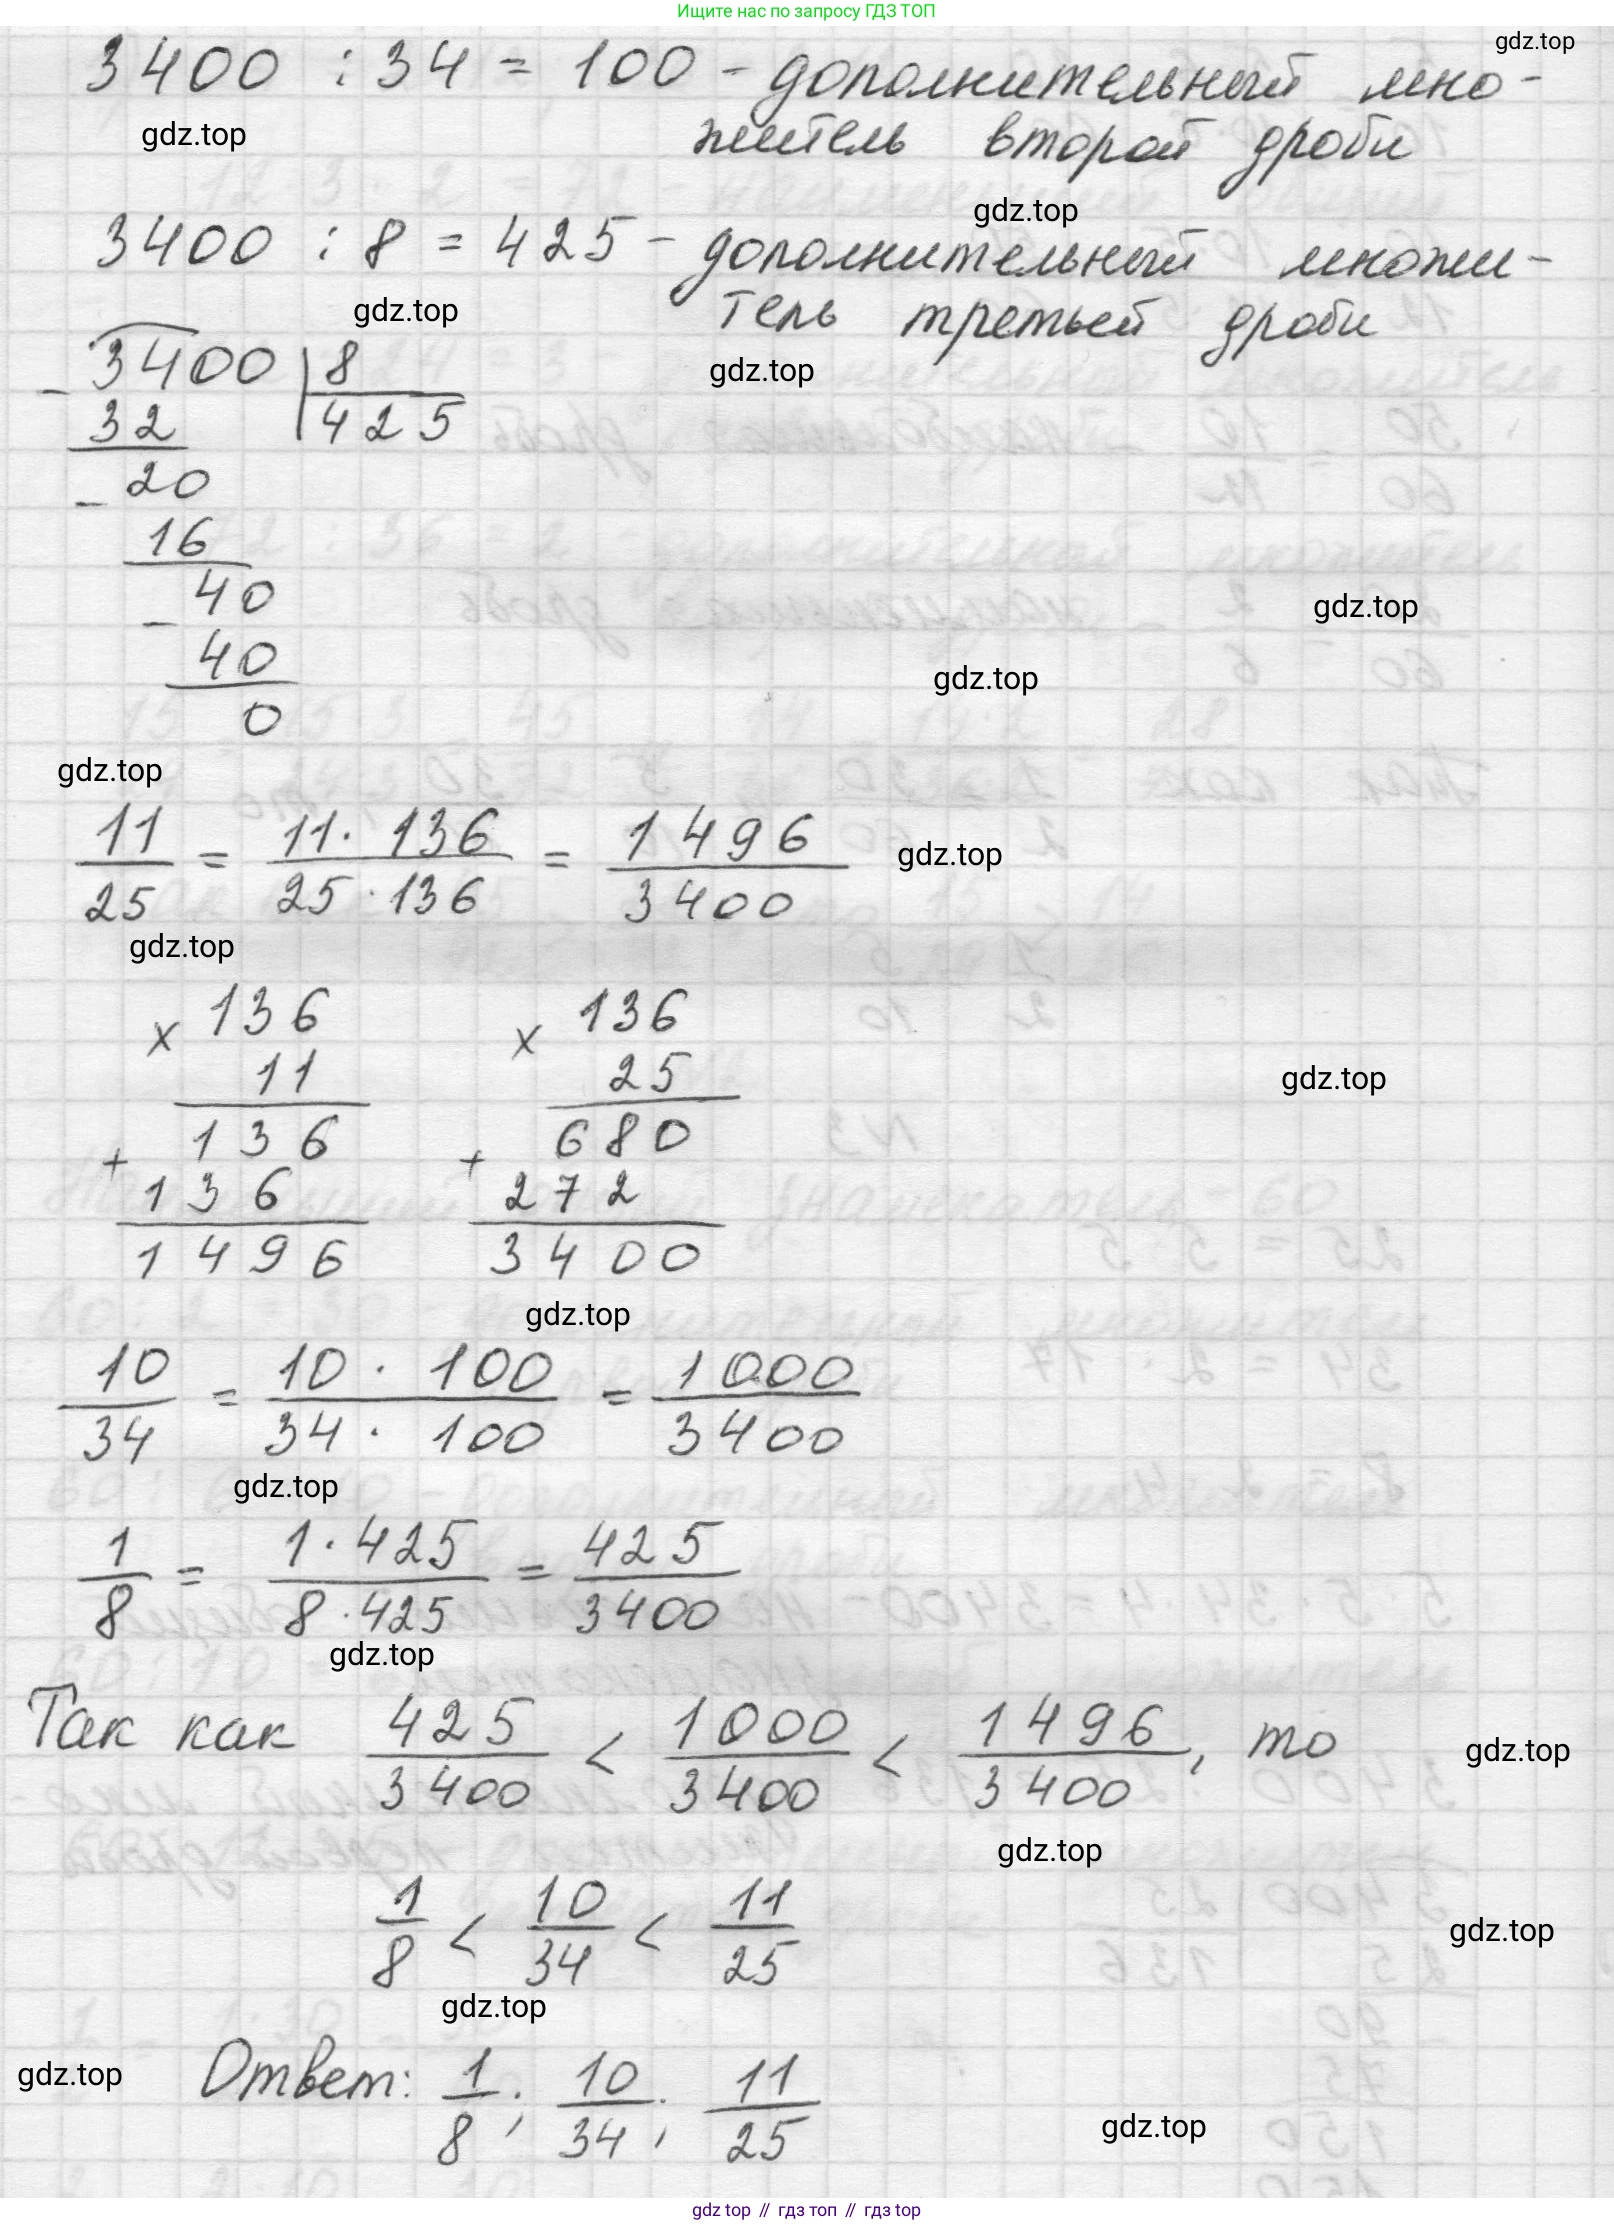 Ищите нас по запросу ГДЗ ТОП
gdz.top
3400 : 34 = 100 - дополнительный мно-
gdz.top
житель второй дроби
gdz.top
3400 : 8 = 425 - дополнительный множи-
gdz.top
тель третьей дроби
gdz.top
3400 | 8
- 32 | 425
20
- 16
40
- 40
0
gdz.top
gdz.top
gdz.top
11/25 = 11 · 136/25 · 136 = 1496/3400
gdz.top
gdz.top
136 136
x 11 x 25
gdz.top
136 680
+ 136 + 272
1496 3400
gdz.top
10/34 = 10 · 100/34 · 100 = 1000/3400
gdz.top
1/8 = 1 · 425/8 · 425 = 425/3400
gdz.top
Так как 425/3400 < 1000/3400 < 1496/3400, то
gdz.top
gdz.top
1/8 < 10/34 < 11/25
gdz.top
gdz.top
gdz.top
Ответ: 1/8; 10/34; 11/25
gdz.top
gdz top // гдз топ // гдз top